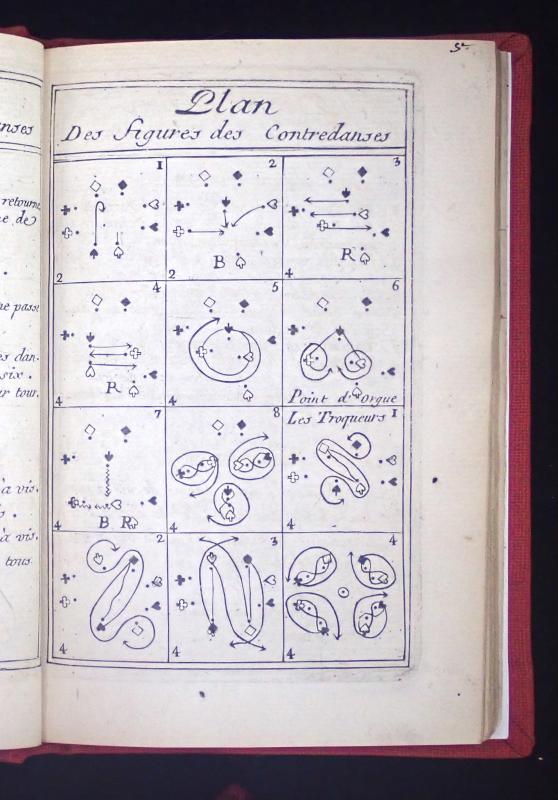 5.
nses
retourne
ne de
ne passe
es dan-
six.
ur tour.
à vis.
s.
à vis.
tous
Plan
Des figures des Contredanses
1
2
3
B
R
2
2
4
4
5
6
R
Point d'Orgue
4
4
4
7
8
Les Troqueurs 1
B R
4
4
4
2
3
4
4
4
4